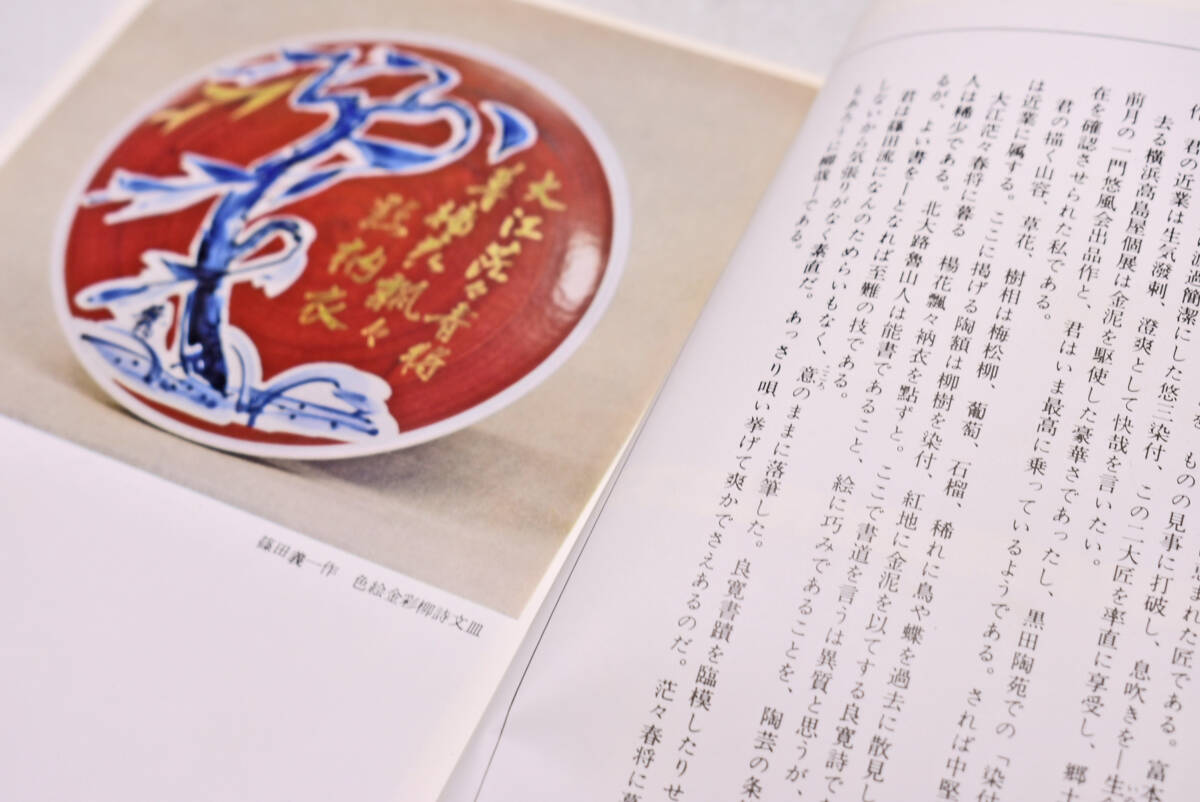 大江茫々春将
暮楊花飄々
點衲衣
篠田義一作　色絵金彩柳詩文皿
まれた匠である。富本
ものの見事に打破し、息吹きを―生
過簡潔にした悠三染付、この二大匠を率直に享受し、郷土
君の近業は生気潑剌、澄爽として快哉を言いたい。
去る横浜高島屋個展は金泥を駆使した豪華さであったし、黒田陶苑での「染付
前月の一門悠風会出品作と、君はいま最高に乗っているようである。されば中堅
在を確認させられた私である。
君の描く山容、草花、樹相は梅松柳、葡萄、石榴、稀れに鳥や蝶を過去に散見し
は近業に属する。ここに掲げる陶額は柳樹を染付、紅地に金泥を以てする良寛詩で
大江茫々春将に暮る　楊花飄々衲衣を點ずと。ここで書道を言うは異質と思うが、
人は稀少である。北大路魯山人は能書であること、絵に巧みであることを、陶芸の条
るが、よい書を―となれば至難の技である。
君は篠田流になんのためらいもなく、意のままに落筆した。良寛書蹟を臨模したりせ
しないから気張りがなく素直だ。あっさり唄い挙げて爽かでさえあるのだ。茫々春将に暮
もあろうに柳哉―である。